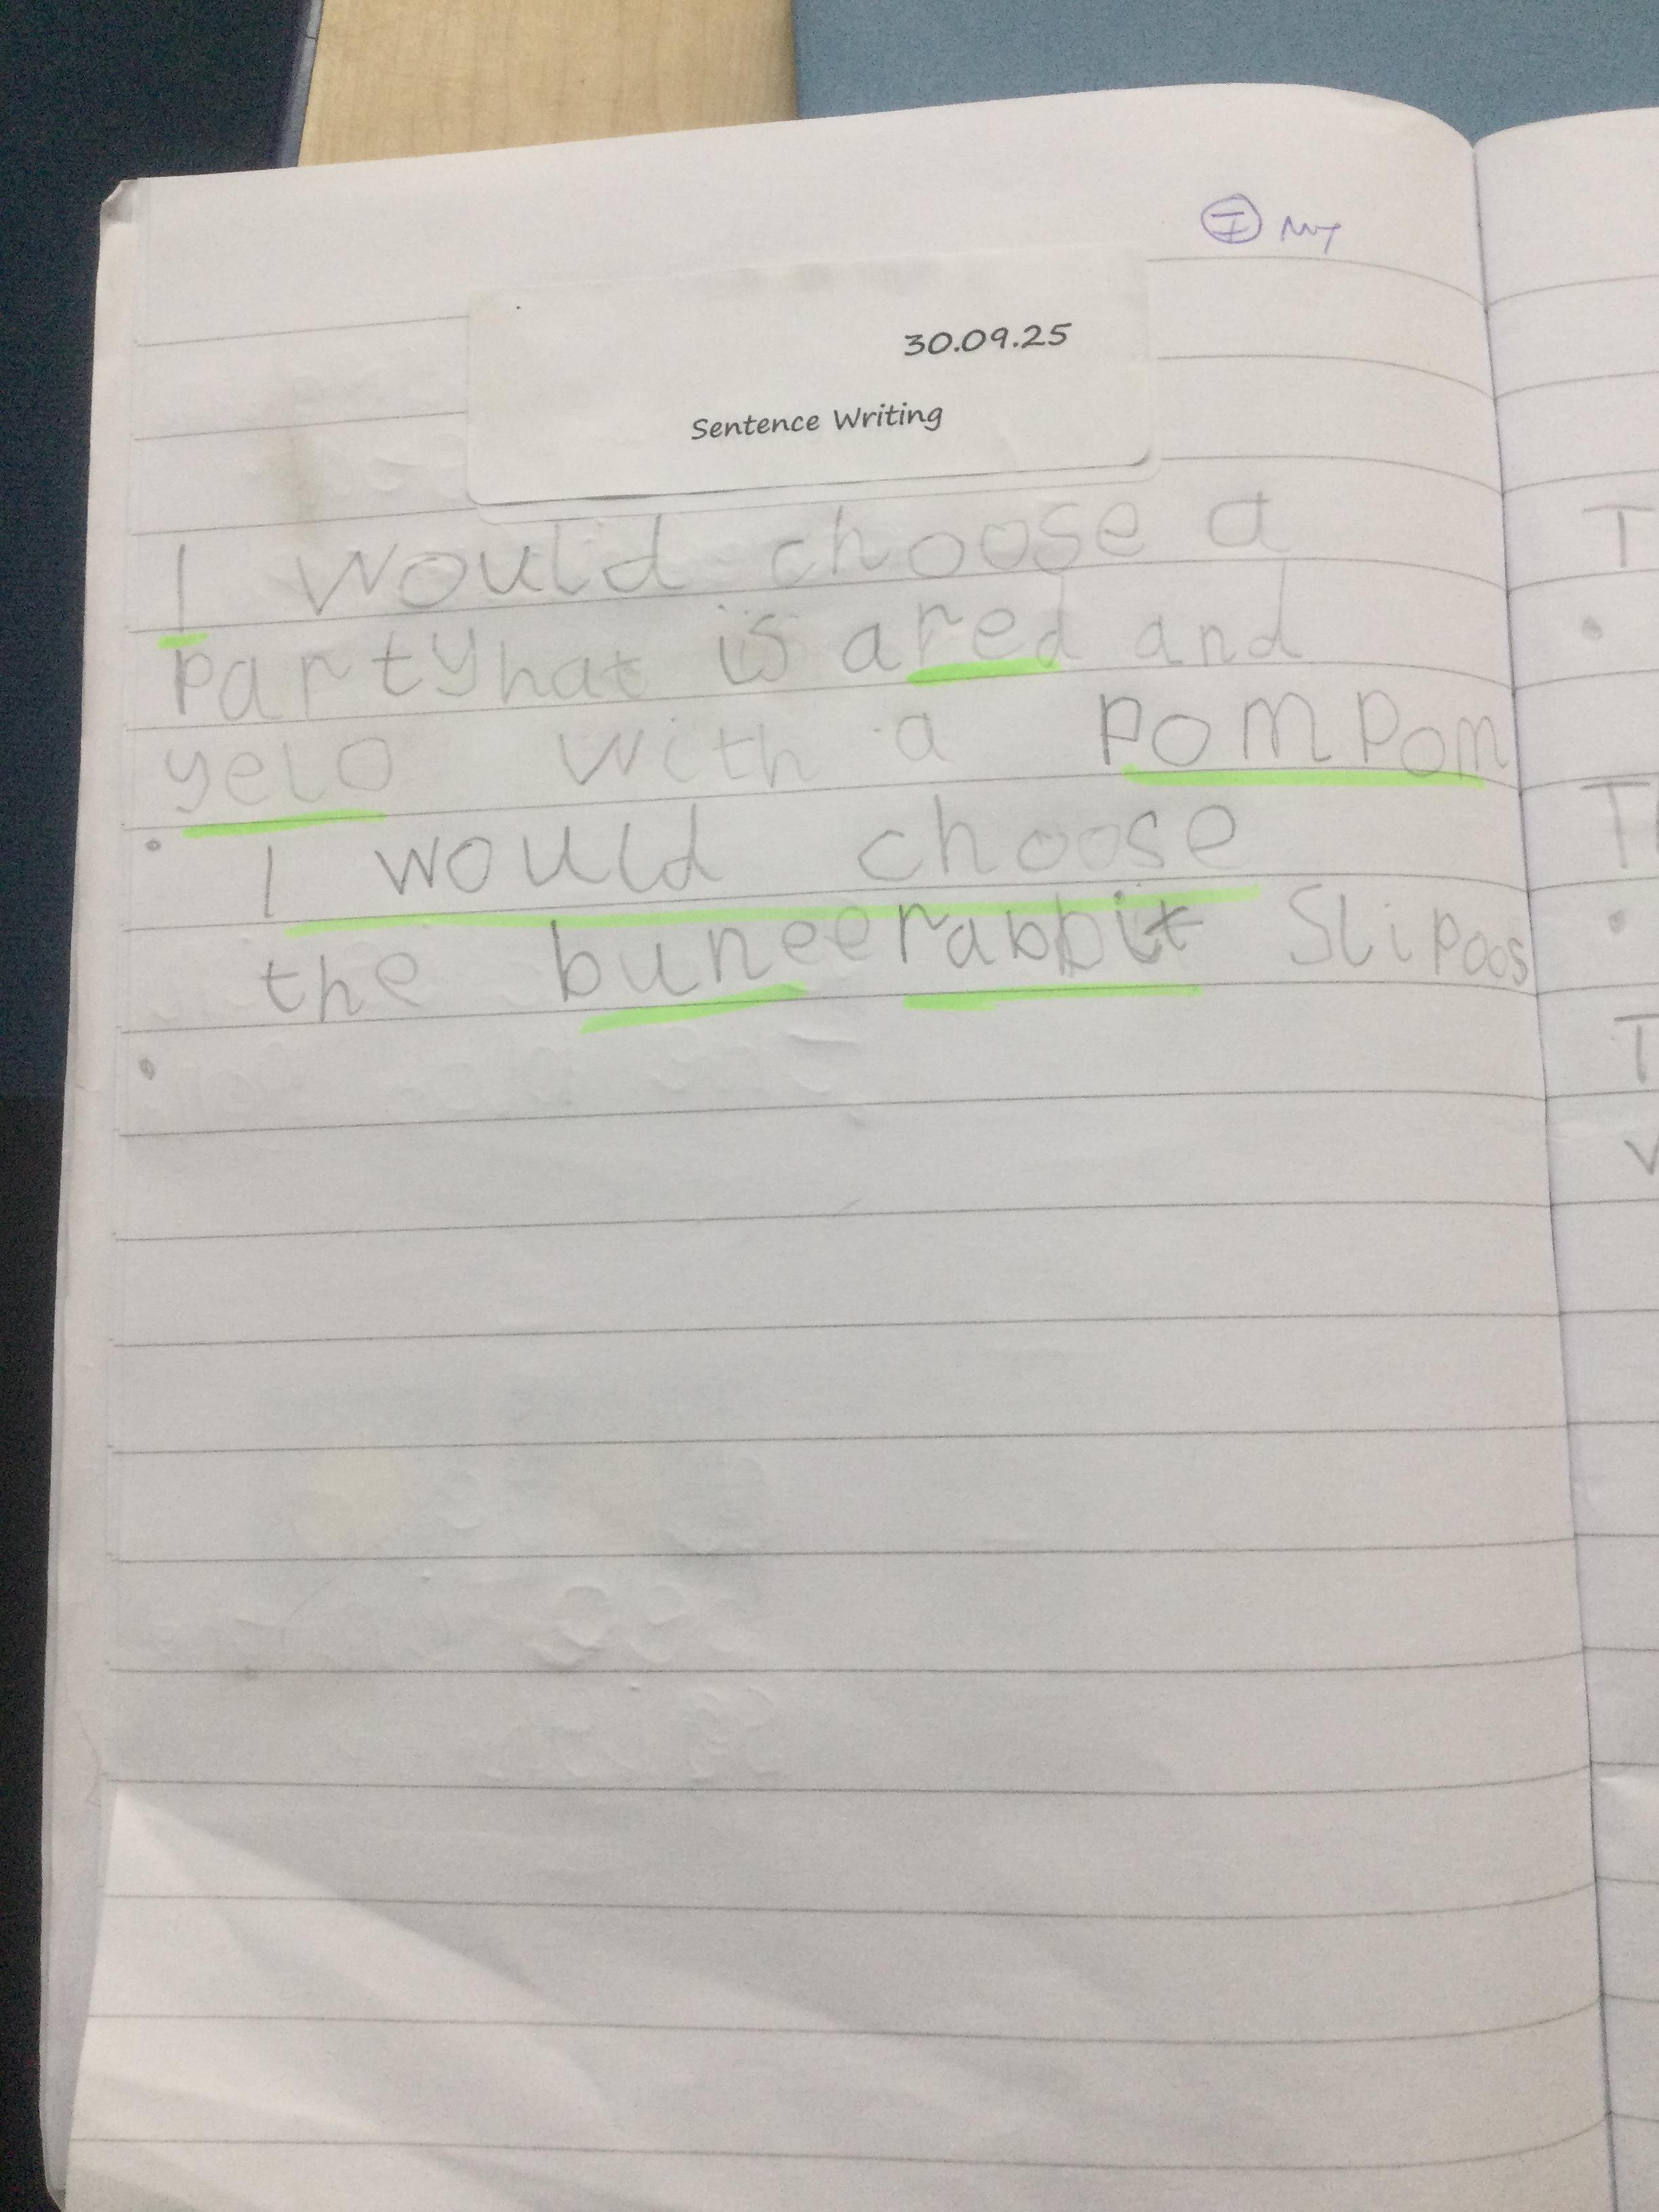 I
30.09.25
Sentence Writing
I would choose a
Partyhat is a red and
yelo with a PomPom
. I would choose
the buneerabbit Slipoos
.
T
.
T
.
T